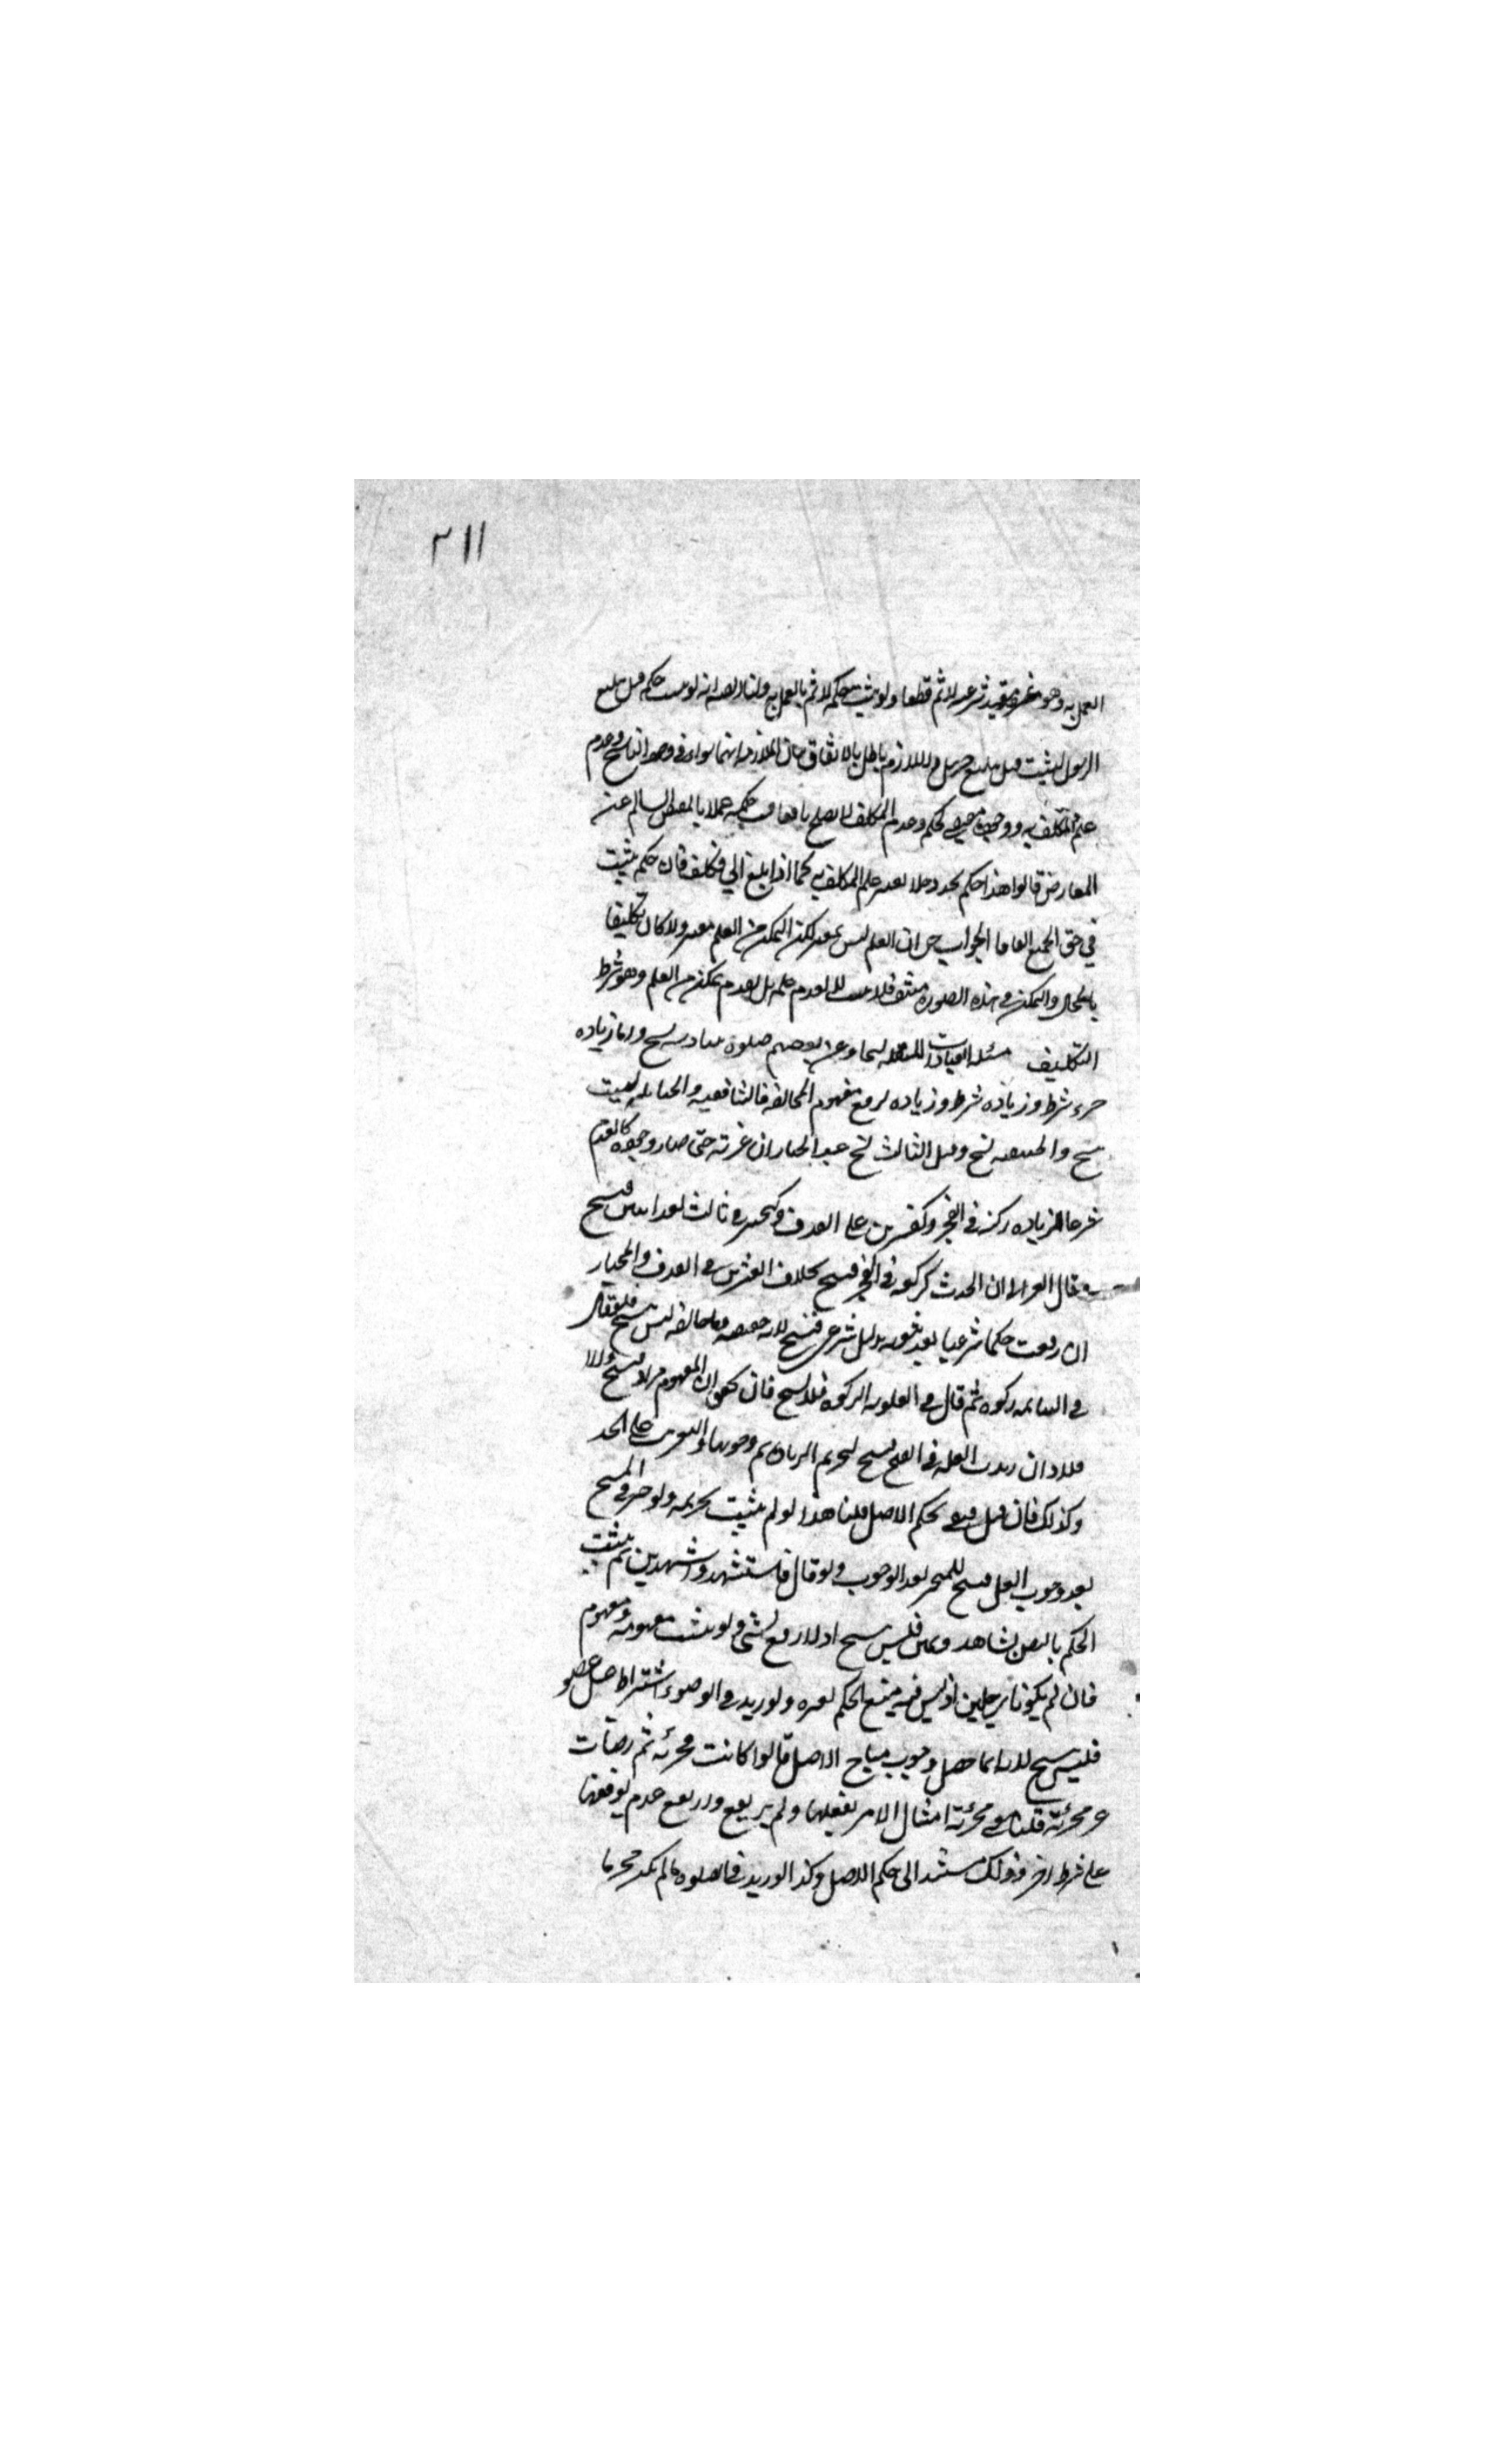 ٢١١
العمل به وهو غير معتقد شرعيته لاثم قطعا ولو يثبت حكمه لاثم بالعمل به ولنا ايضا انه لو ثبت حكمه قبل تبليغ
الرسول ليثبت قبل تبليغ جبريل واللازم باطل بالاتفاق بيان الملازمة انهما سواء في وجود الناسخ وعدم
علم المكلف به ووجود مقتضى الحكم وعدم المكلف لا يصلح مانعا حكمه عملا بالمقتضى السالم عن
المعارض قالوا هذا حكم تجدد فلا يعتبر علم المكلف به كما اذا بلغ الى مكلف فان حكم يثبت
في حق الجميع اتفاقا الجواب ان العلم ليس بمعتبر لكن التمكن من العلم معتبر والا كان تكليفا
بالمحال والتمكن في هذه الصورة منتف فلا يثبت لا لعدم علم بل لعدم تمكن من العلم وهو شرط
التكليف مسئلة العبادات المستقلة ليس نسخا وعن بعضهم صلوة سادسة نسخ واما زيادة
جزء شرط وزيادة شرط وزيادة ترفع مفهوم المخالفة فالشافعية والحنابلة ليست
نسخ والحنفية نسخ وقيل الثالث نسخ عبد الجبار ان غيرته حتى صار وجوده كالعدم
شرعا كزيادة ركعة في الفجر وكعشرين على القذف وكتخيير في ثالث بعد اثنين فنسخ
وقال الغزالي ان اتحدت كركعة في الفجر فنسخ بخلاف العشرين في القذف والمختار
ان رفعت حكما شرعيا بعد ثبوته بدليل شرعي فنسخ لانه حقيقته وما خالفه ليس بنسخ فلو قال
في السائمة زكوة ثم قال في المعلوفة الزكوة فلا نسخ فان تحقق ان المفهوم مراد فنسخ والا
فلا وان زيدت ركعة في الصبح فنسخ لتحريم الزيادة ثم وجوبها والتغريب على الحد
وكذلك فان قيل منفي بحكم الاصل قلنا هذا لو لم يثبت تحريمه ولو خير في المسح
بعد وجوب الغسل فنسخ للتخيير بعد الوجوب ولو قال فاستشهدوا شهيدين ثم يثبت
الحكم بالنص بشاهد ويمين فليس بنسخ اذ لا رفع لشئ ولو يثبت مفهومه ومفهوم
فان لم يكونا رجلين اذ ليس فيه منع الحكم بغيره ولو زيد في الوضوء اشتراط غسل عضو
فليس بنسخ لانه انما حصل وجوب مباح الاصل قالوا كانت مجزئة ثم صارت
غير مجزئة قلنا معنى مجزئة امتثال الامر بفعلها ولم يرتفع وارتفع عدم توقفها
على شرط اخر وذلك مستند الى حكم الاصل وكذا لو زيد في الصلوة ما لم يكن محرما